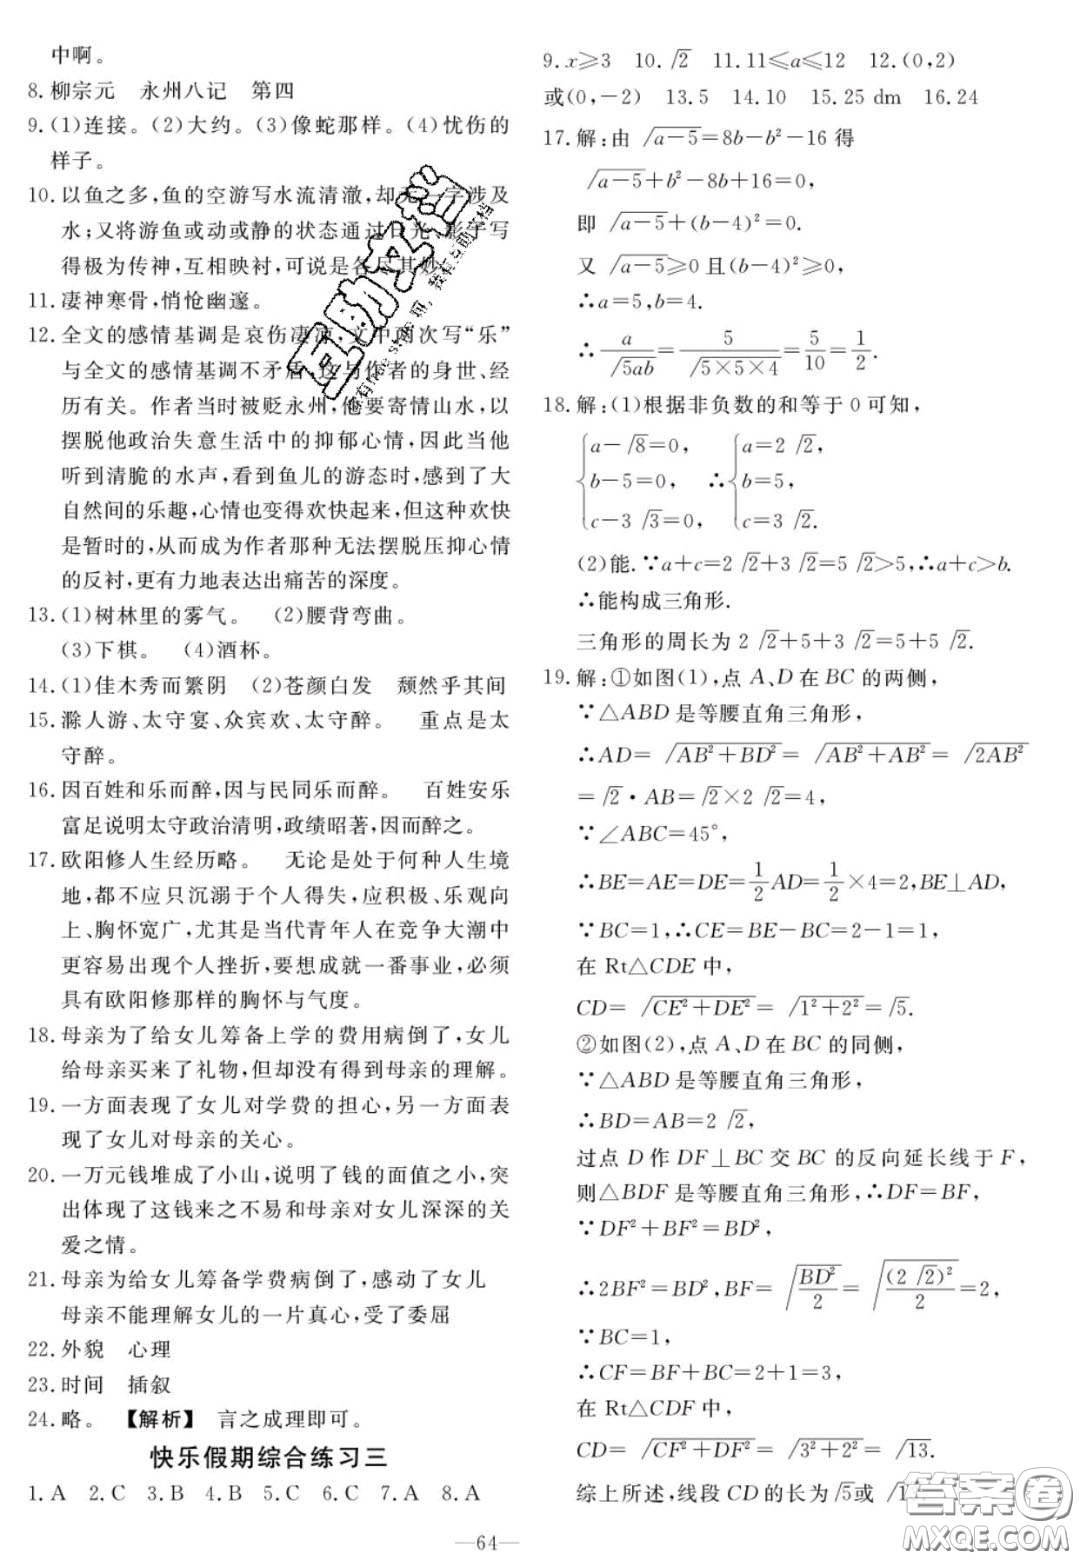 中啊。
8.柳宗元　永州八记　第四
9.(1)连接。(2)大约。(3)像蛇那样。(4)忧伤的
样子。
10.以鱼之多,鱼的空游写水流清澈,却无一字涉及
水;又将游鱼或动或静的状态通过日光、影子写
得极为传神,互相映衬,可说是各尽其妙。
11.凄神寒骨,悄怆幽邃。
12.全文的感情基调是哀伤凄凉,文中两次写“乐”
与全文的感情基调不矛盾,这与作者的身世、经
历有关。作者当时被贬永州,他要寄情山水,以
摆脱他政治失意生活中的抑郁心情,因此当他
听到清脆的水声,看到鱼儿的游态时,感到了大
自然间的乐趣,心情也变得欢快起来,但这种欢快
是暂时的,从而成为作者那种无法摆脱压抑心情
的反衬,更有力地表达出痛苦的深度。
13.(1)树林里的雾气。　(2)腰背弯曲。
(3)下棋。　(4)酒杯。
14.(1)佳木秀而繁阴　(2)苍颜白发　颓然乎其间
15.滁人游、太守宴、众宾欢、太守醉。　重点是太
守醉。
16.因百姓和乐而醉,因与民同乐而醉。　百姓安乐
富足说明太守政治清明,政绩昭著,因而醉之。
17.欧阳修人生经历略。　无论是处于何种人生境
地,都不应只沉溺于个人得失,应积极、乐观向
上、胸怀宽广,尤其是当代青年人在竞争大潮中
更容易出现个人挫折,要想成就一番事业,必须
具有欧阳修那样的胸怀与气度。
18.母亲为了给女儿筹备上学的费用病倒了,女儿
给母亲买来了礼物,但却没有得到母亲的理解。
19.一方面表现了女儿对学费的担心,另一方面表
现了女儿对母亲的关心。
20.一万元钱堆成了小山,说明了钱的面值之小,突
出体现了这钱来之不易和母亲对女儿深深的关
爱之情。
21.母亲为给女儿筹备学费病倒了,感动了女儿
母亲不能理解女儿的一片真心,受了委屈
22.外貌　心理
23.时间　插叙
24.略。　【解析】　言之成理即可。
快乐假期综合练习三
1.A　2.C　3.B　4.B　5.C　6.C　7.A　8.A
9.x≥3　10.√2　11.11≤a≤12　12.(0,2)
或(0,-2)　13.5　14.10　15.25 dm　16.24
17.解:由 √(a-5)=8b-b²-16 得
√(a-5)+b²-8b+16=0,
即 √(a-5)+(b-4)²=0.
又 √(a-5)≥0 且(b-4)²≥0,
∴a=5,b=4.
∴a/√(5ab)=5/√(5×5×4)=5/10=1/2.
18.解:(1)根据非负数的和等于 0 可知,
{a-√8=0,　{a=2√2,
b-5=0,　∴b=5,
c-3√3=0,　c=3√2.
(2)能.∵a+c=2√2+3√2=5√2>5,∴a+c>b.
∴能构成三角形.
三角形的周长为 2√2+5+3√2=5+5√2.
19.解:①如图(1),点 A、D 在 BC 的两侧,
∵△ABD 是等腰直角三角形,
∴AD=√(AB²+BD²)=√(AB²+AB²)=√(2AB²)
=√2·AB=√2×2√2=4,
∵∠ABC=45°,
∴BE=AE=DE=1/2AD=1/2×4=2,BE⊥AD,
∵BC=1,∴CE=BE-BC=2-1=1,
在 Rt△CDE 中,
CD=√(CE²+DE²)=√(1²+2²)=√5.
②如图(2),点 A、D 在 BC 的同侧,
∵△ABD 是等腰直角三角形,
∴BD=AB=2√2,
过点 D 作 DF⊥BC 交 BC 的反向延长线于 F,
则△BDF 是等腰直角三角形,∴DF=BF,
∵DF²+BF²=BD²,
∴2BF²=BD²,BF=√(BD²/2)=√((2√2)²/2)=2,
∵BC=1,
∴CF=BF+BC=2+1=3,
在 Rt△CDF 中,
CD=√(CF²+DF²)=√(3²+2²)=√13.
综上所述,线段 CD 的长为√5或√13.
—64—
互助文档
答案圈
MXQE.COM